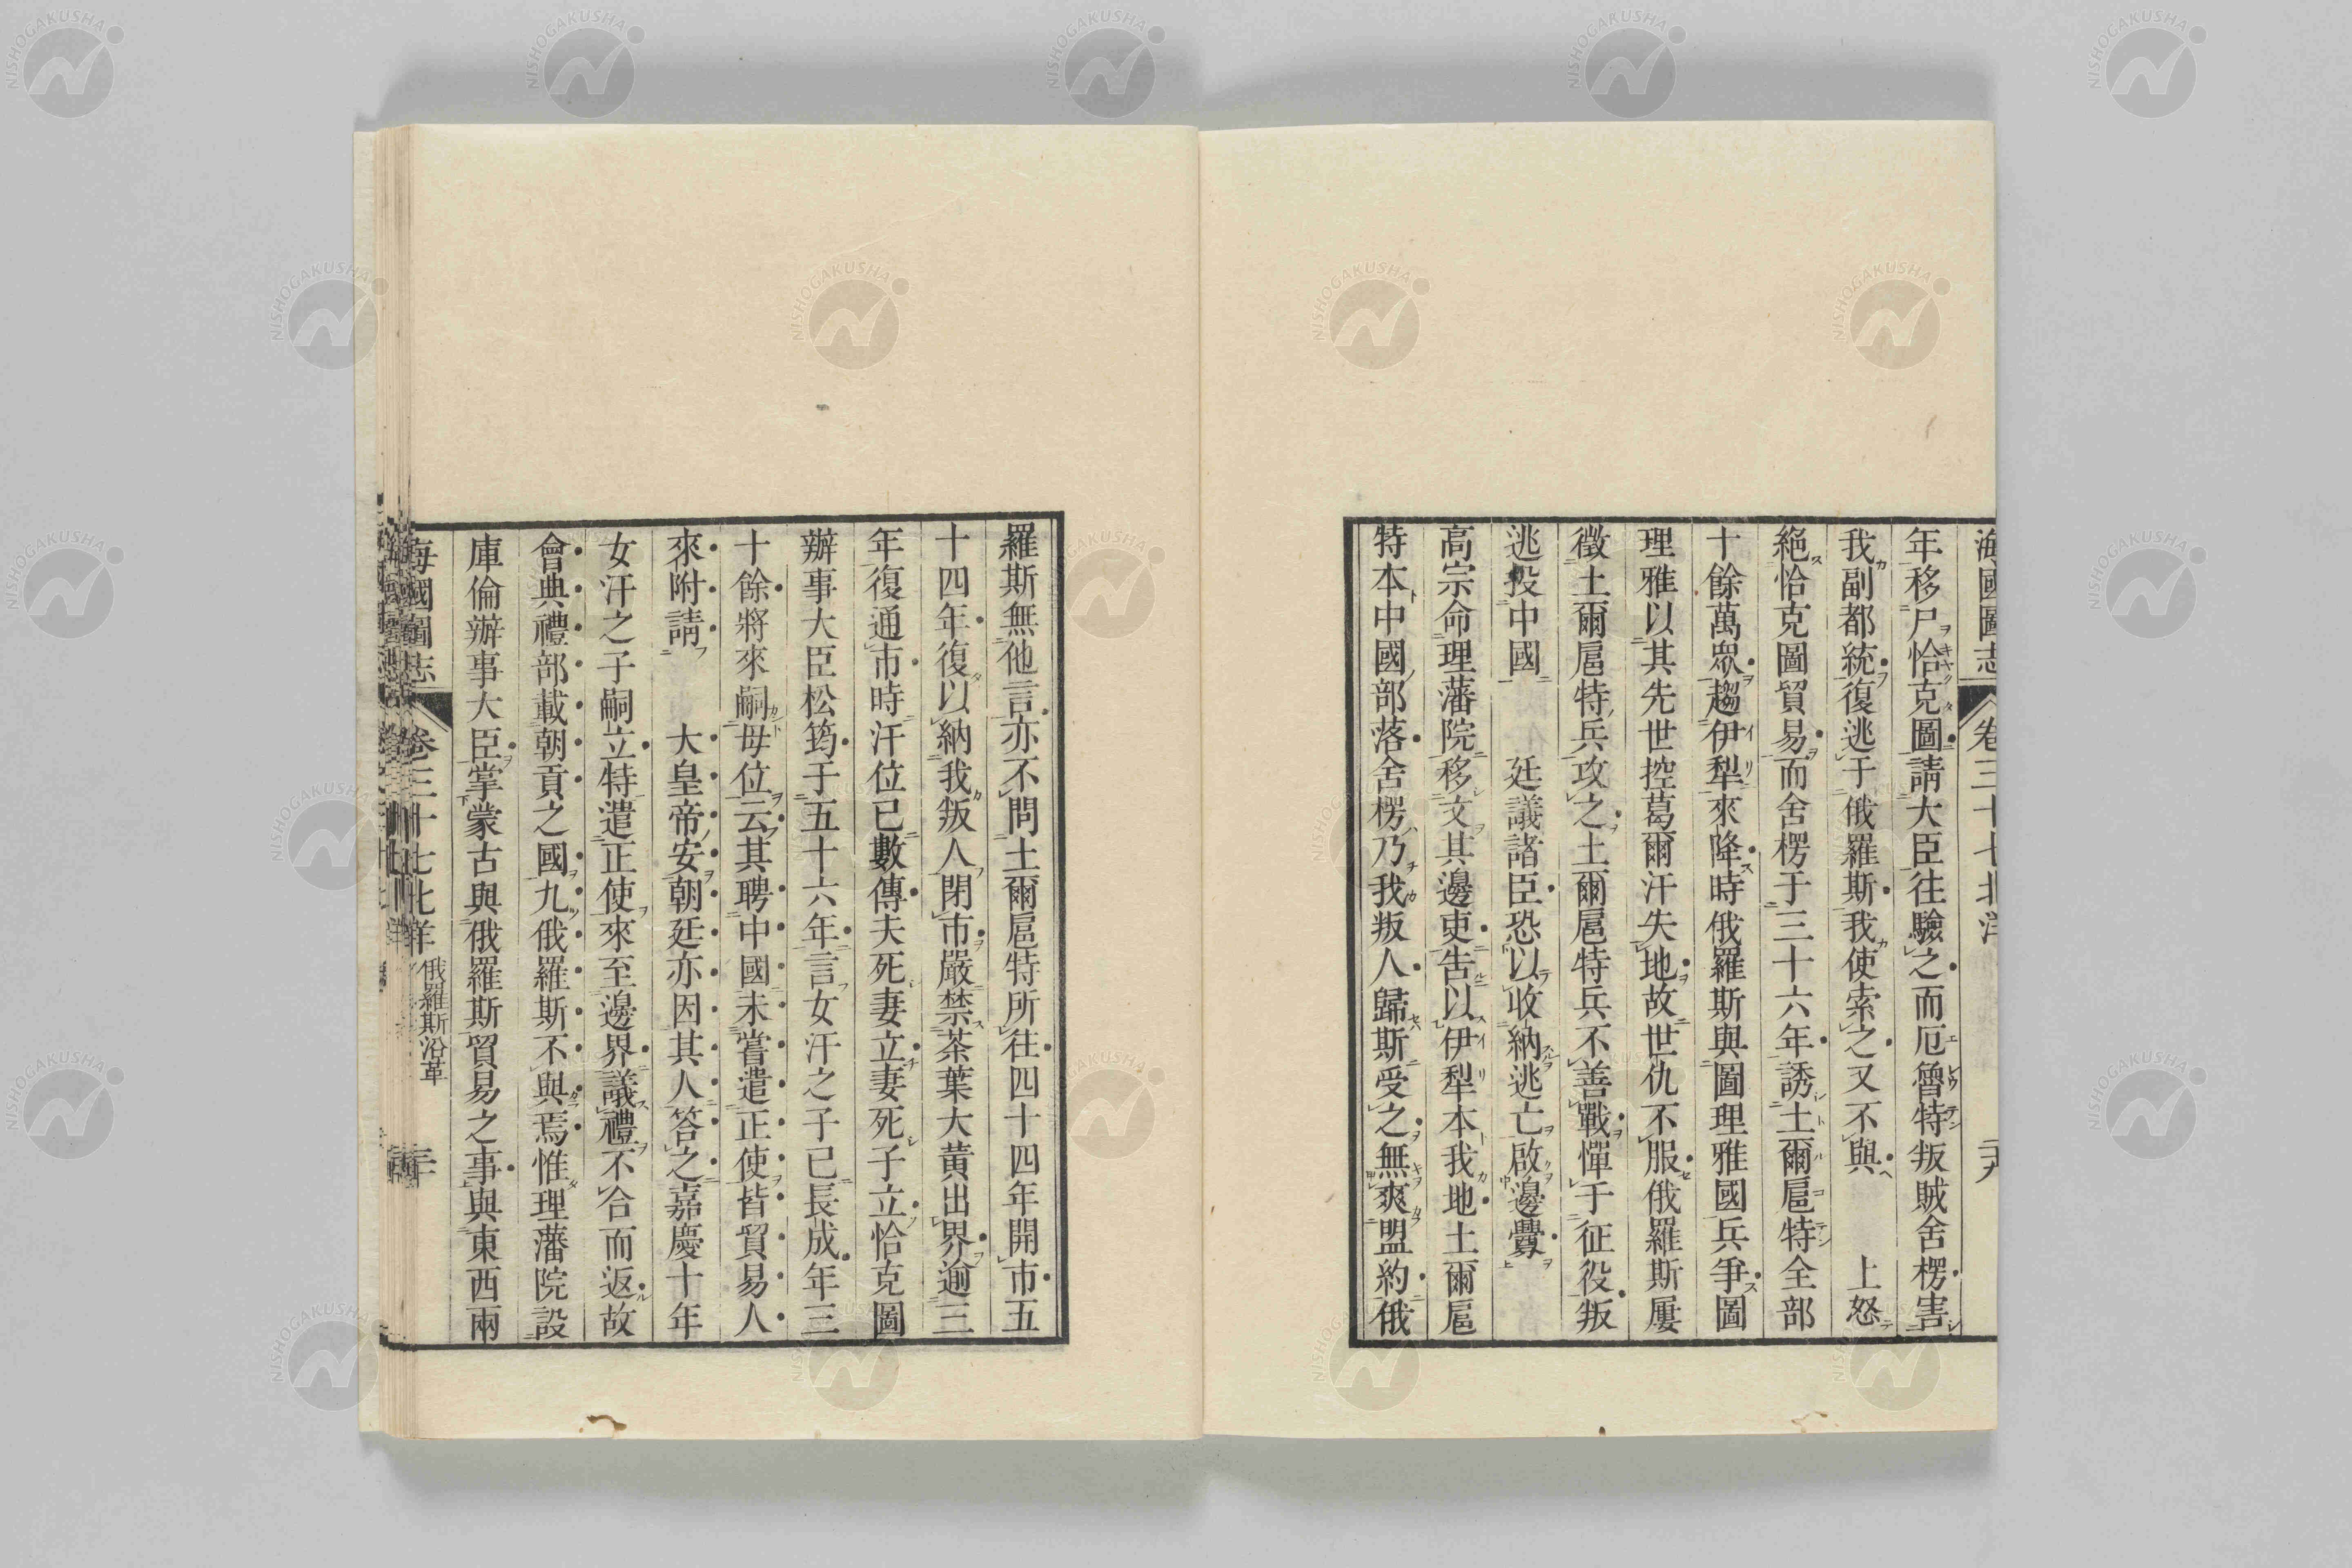 海國圖志 卷三十七北洋
年移尸恰克圖請大臣往驗之而厄魯特叛賊舍楞害
我副都統復逃于俄羅斯我使索之又不與 上怒
絕恰克圖貿易而舍楞于三十六年誘土爾扈特全部
十餘萬眾趨伊犁來降時俄羅斯與圖理雅國兵爭圖
理雅以其先世控葛爾汗失地故世仇不服俄羅斯屢
徵土爾扈特兵攻之土爾扈特兵不善戰憚于征役叛
逃投中國 廷議諸臣恐以收納逃亡啟邊釁
高宗命理藩院移文其邊吏告以伊犁本我地土爾扈
特本中國部落舍楞乃我叛人歸斯受之無爽盟約俄
羅斯無他言亦不問土爾扈特所往四十四年開市五
十四年復以納我叛人閉市嚴禁茶葉大黃出界逾三
年復通市時汗位已數傳夫死妻立妻死子立恰克圖
辦事大臣松筠于五十六年言女汗之子已長成年三
十餘將來嗣母位云其聘中國未嘗遣正使皆貿易人
來附請 大皇帝安朝廷亦因其人答之嘉慶十年
女汗之子嗣立特遣正使來至邊界議禮不合而返故
會典禮部載朝貢之國九俄羅斯不與焉惟理藩院設
庫倫辦事大臣掌蒙古與俄羅斯貿易之事與東西兩
海國圖志 卷三十七北洋 俄羅斯沿革 三十
NISHOGAKUSHA